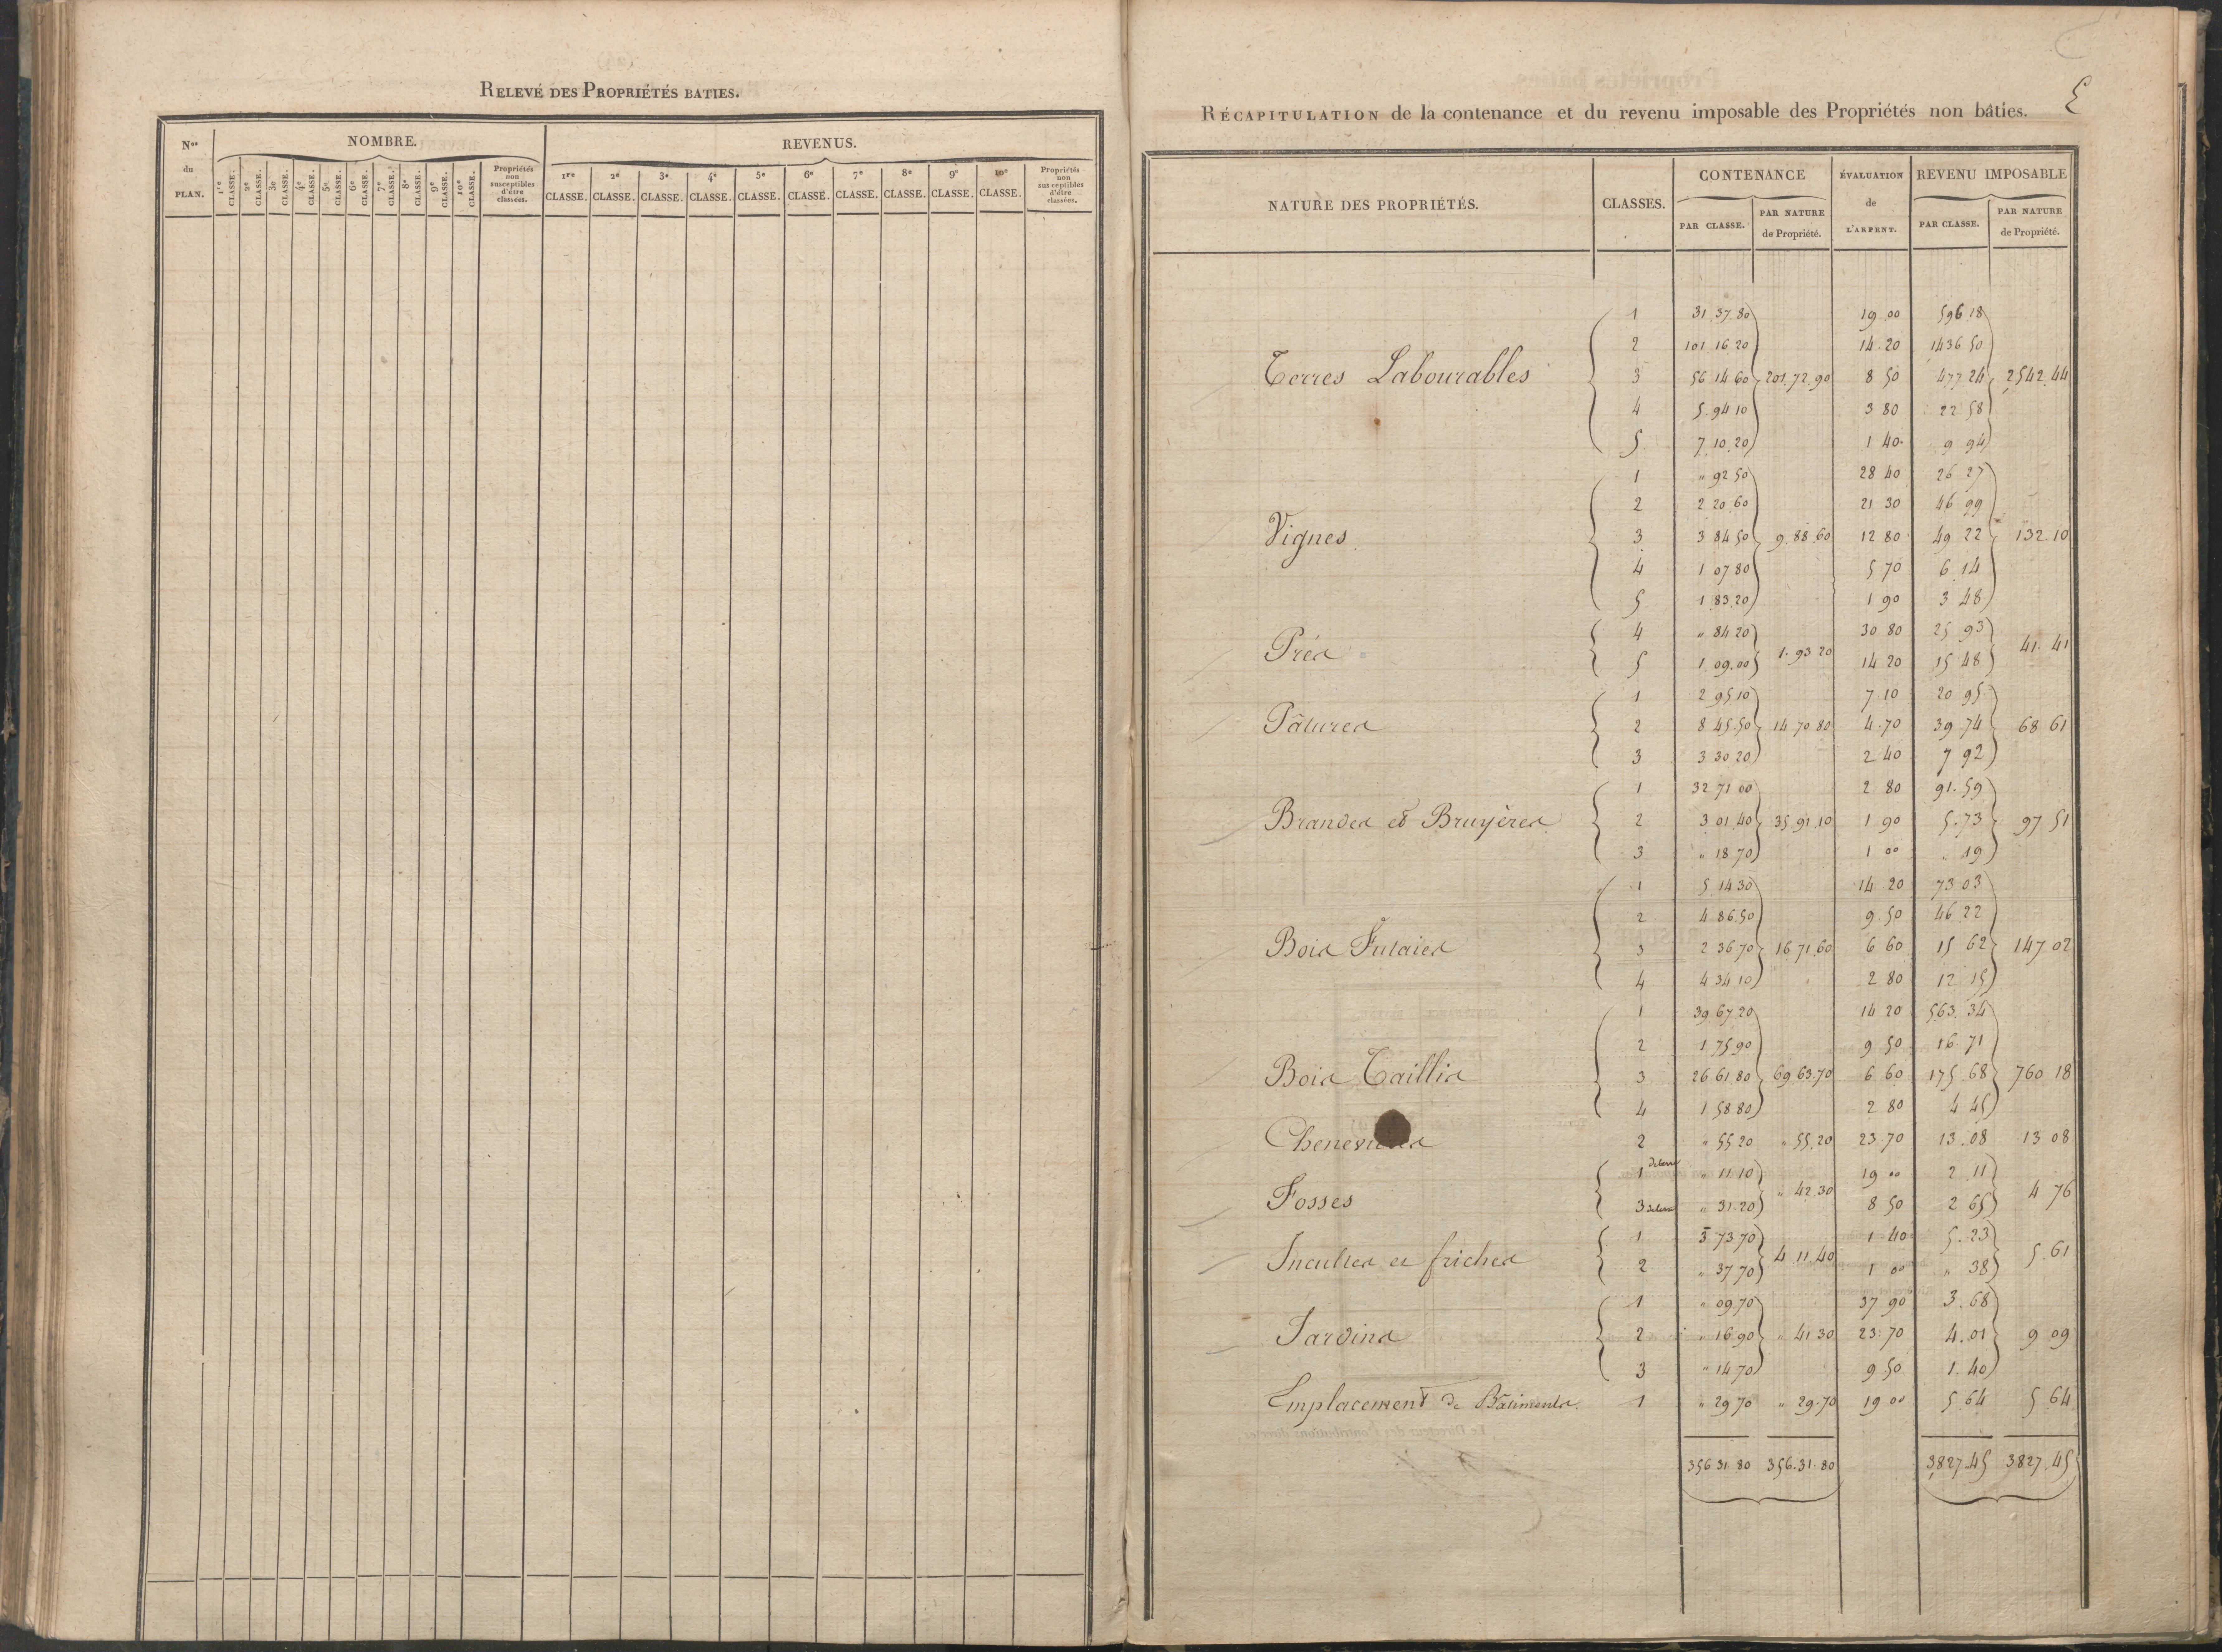 RELEVÉ DES PROPRIÉTÉS BATIES.
Nos du PLAN.
NOMBRE.
REVENUS.
1re CLASSE. 2e CLASSE. 3e CLASSE. 4e CLASSE. 5e CLASSE. 6e CLASSE. 7e CLASSE. 8e CLASSE. 9e CLASSE. 10e CLASSE. Propriétés non susceptibles d'être classées.
1re CLASSE. 2e CLASSE. 3e CLASSE. 4e CLASSE. 5e CLASSE. 6e CLASSE. 7e CLASSE. 8e CLASSE. 9e CLASSE. 10e CLASSE. Propriétés non susceptibles d'être classées.
RÉCAPITULATION de la contenance et du revenu imposable des Propriétés non bâties.
NATURE DES PROPRIÉTÉS. CLASSES. CONTENANCE ÉVALUATION de L'ARPENT. REVENU IMPOSABLE
PAR CLASSE. PAR NATURE de Propriété. PAR CLASSE. PAR NATURE de Propriété.
1 31 37 80 19 00 596 18
2 101 16 20 14 20 1436 50
Terres Labourables 3 56 14 60 201 72 90 8 50 477 24 2542 44
4 5 94 10 3 80 22 58
5 7 10 20 1 40 9 94
1 " 92 50 28 40 26 27
2 2 20 60 21 30 46 99
Vignes 3 3 84 50 9 88 60 12 80 49 22 132 10
4 1 07 80 5 70 6 14
5 1 83 20 1 90 3 48
4 " 84 20 30 80 25 93
Prés 1 93 20 41 41
5 1 09 00 14 20 15 48
1 2 95 10 7 10 20 95
Pâtures 2 8 45 50 14 70 80 4 70 39 74 68 61
3 3 30 20 2 40 7 92
1 32 71 00 2 80 91 59
Brandes et Bruyères 2 3 01 40 35 91 10 1 90 5 73 97 51
3 " 18 70 1 00 " 19
1 5 14 30 14 20 73 03
2 4 86 50 9 50 46 22
Bois Futaies 3 2 36 70 16 71 60 6 60 15 62 147 02
4 4 34 10 2 80 12 15
1 39 67 20 14 20 563 34
2 1 75 90 9 50 16 71
Bois Taillis 3 26 61 80 69 63 70 6 60 175 68 760 18
4 1 58 80 2 80 4 45
2 " 55 20 " 55 20 23 70 13 08 13 08
1 de terre " 11 10 19 00 2 11
Fosses " 42 30 4 76
3 de terre " 31 20 8 50 2 65
1 3 73 70 1 40 5 23
Incultes et friches 4 11 40 5 61
2 " 37 70 1 00 " 38
1 " 09 70 37 90 3 68
Jardins 2 " 16 90 " 41 30 23 70 4 01 9 09
3 " 14 70 9 50 1 40
Emplacement de Bâtiments. 1 " 29 70 " 29 70 19 00 5 64 5 64
356 31 80 356 31 80 3827 45 3827 45